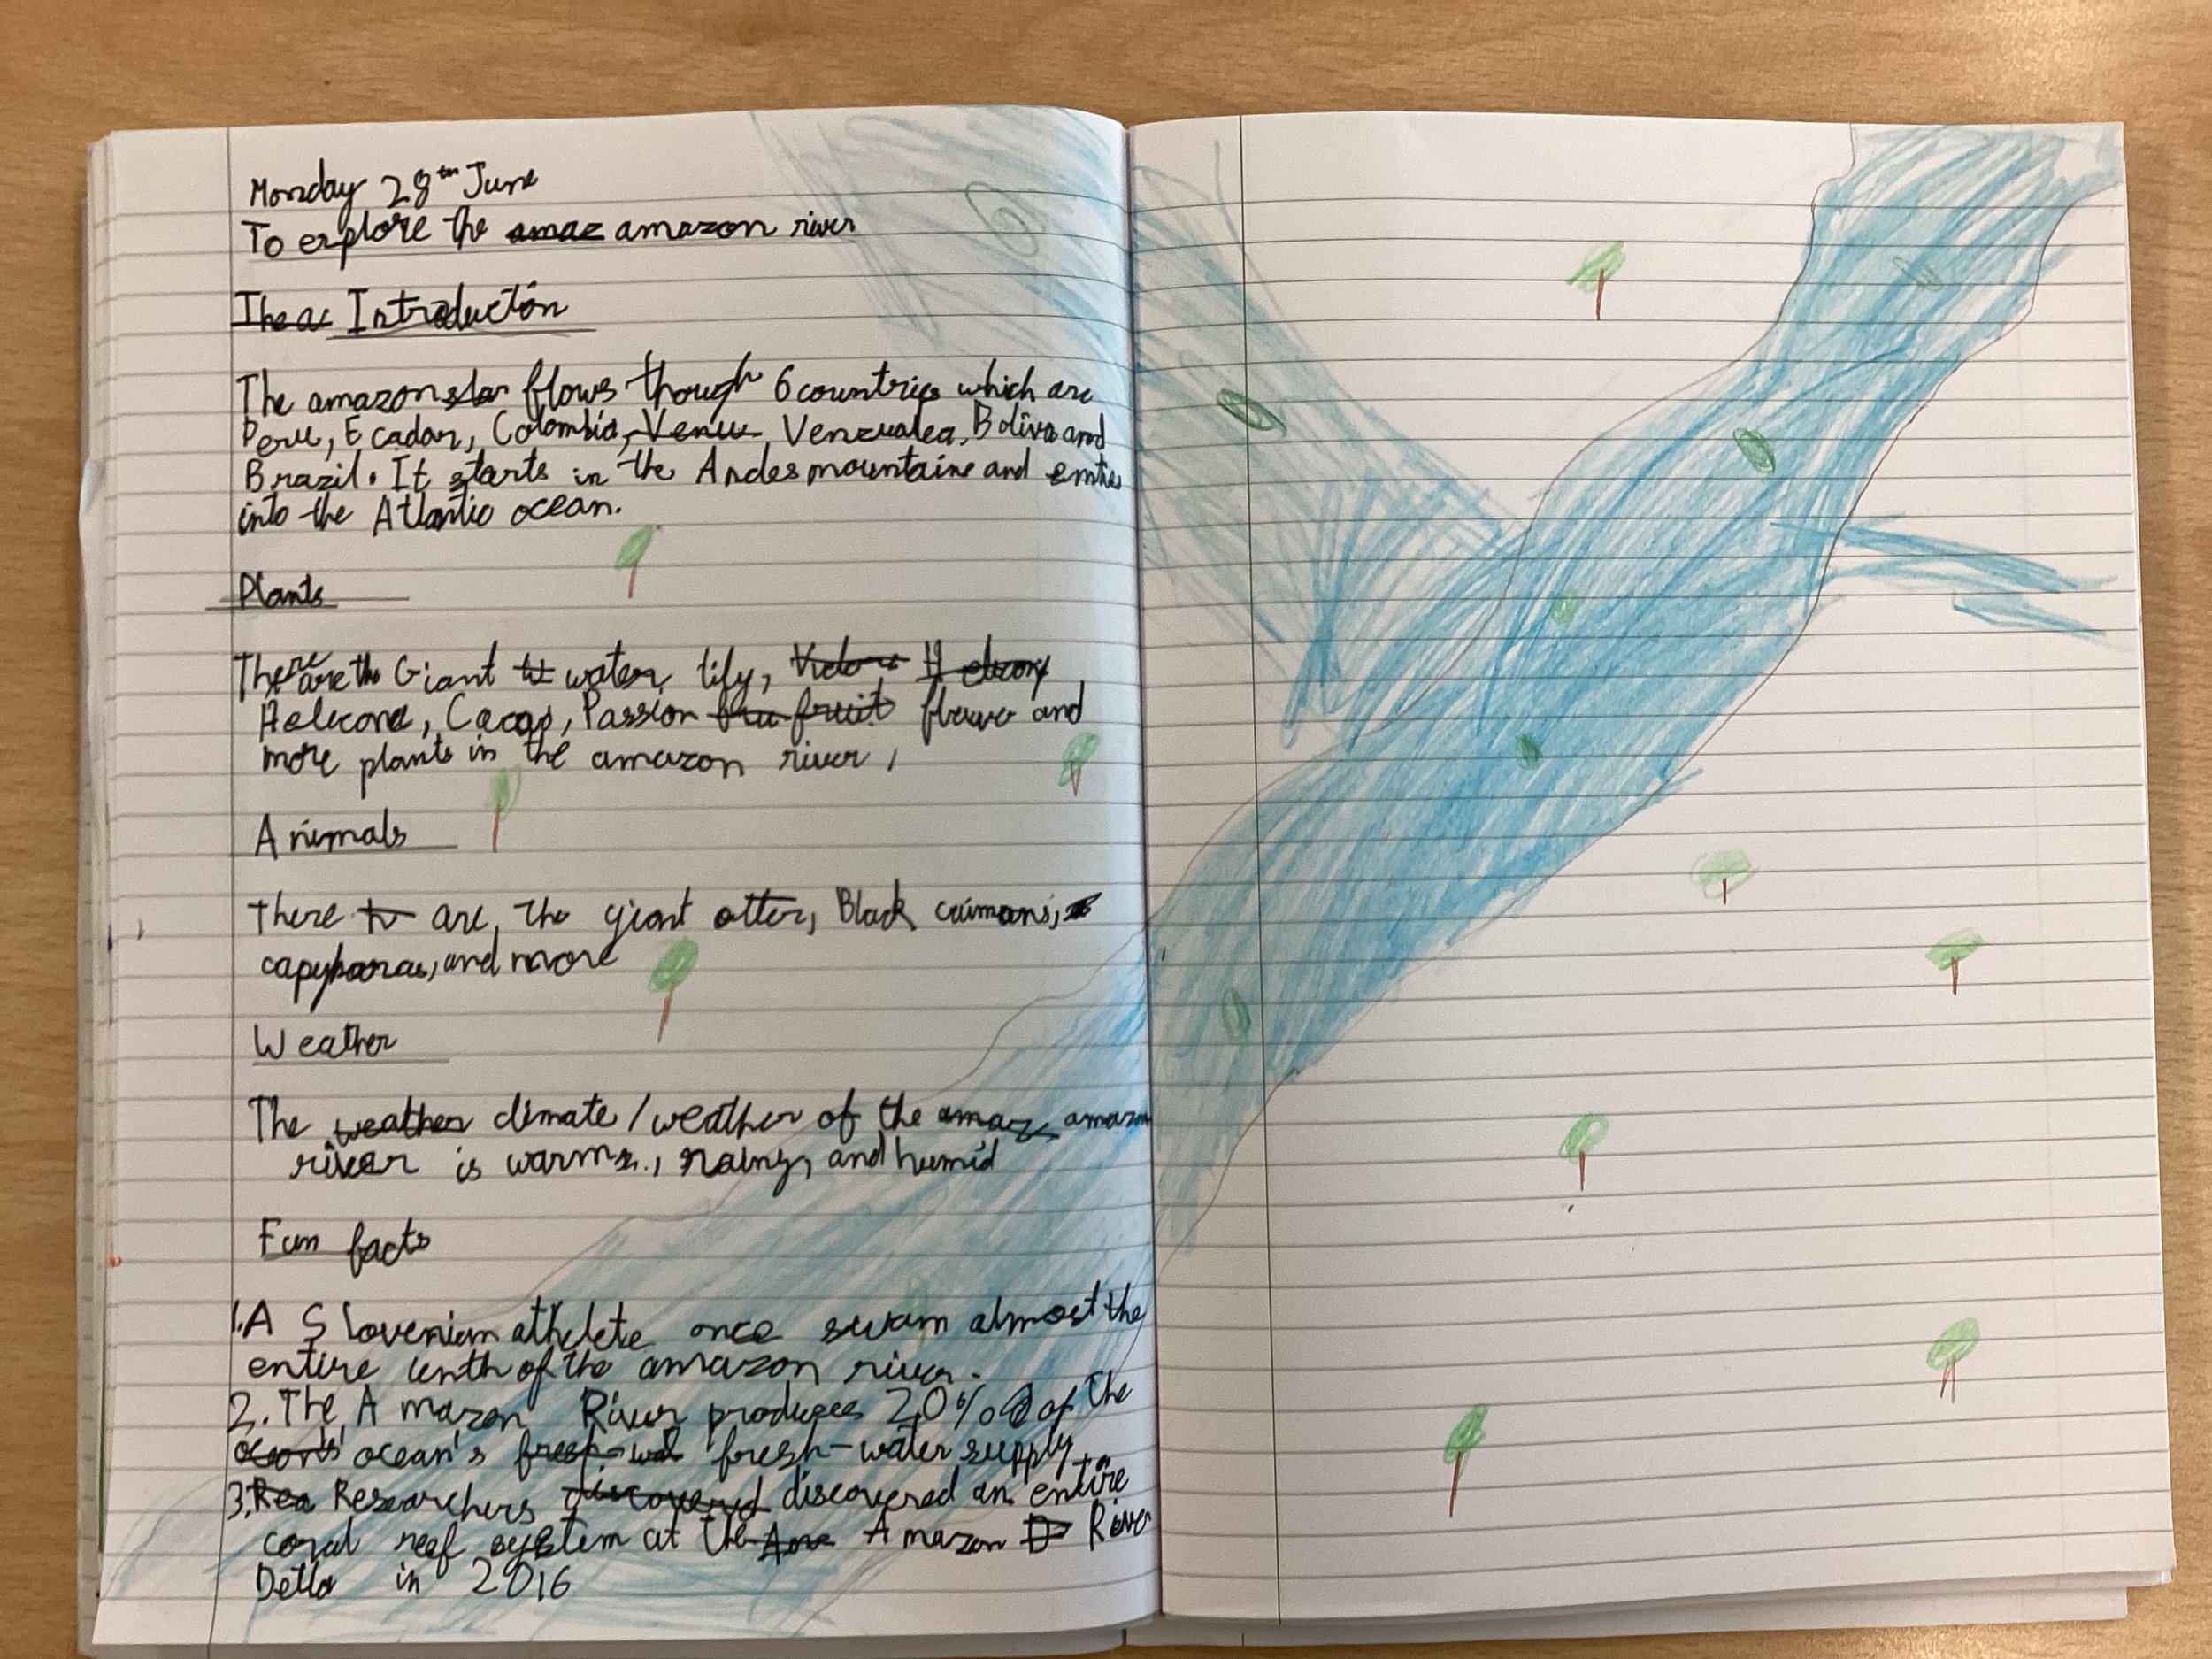 Monday 28th June
To explore the amaz amazon river
The a Introduction
The amazon flows though 6 countries which are
Peru, Ecadar, Colombia, Venu, Venzualea, Boliva and
Brazil. It starts in the Andes mountains and emties
into the Atlantic ocean.
Plants
There are the Giant water lily,
Helicona, Cacao, Passion fru fruit flower and
more plants in the amazon river,
Animals
There are the giant otter, Black caimans,
capybaras, and more
Weather
The weather climate/weather of the amaz amazon
river is warm, rainy, and humid
Fun facts
1.A Slovenian athelete once swam almost the
entire lenth of the amazon river.
2. The Amazon River produces 20% of the
ocean's ocean's fresh-wat fresh-water supply
3. Rea Researchers discovered discovered an entire
coral reef system at the Ama Amazon D River
Delta in 2016